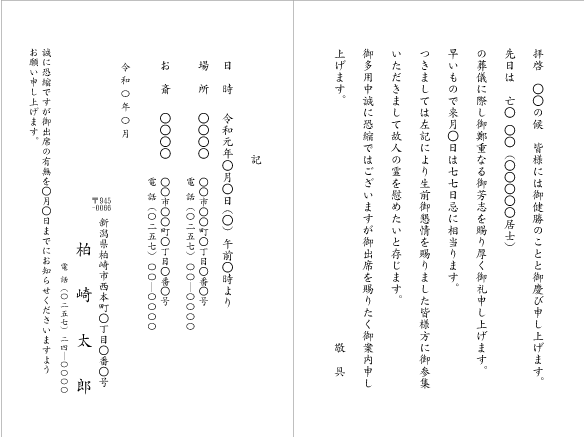 拝啓　〇〇の候　皆様には御健勝のことと御慶び申し上げます。
先日は　亡〇　〇〇（〇〇〇〇〇居士）
の葬儀に際し御鄭重なる御芳志を賜り厚く御礼申し上げます。
早いもので来月〇日は七七日忌に相当ります。
つきましては左記により生前御懇情を賜りました皆様方に御参集
いただきまして故人の霊を慰めたいと存じます。
御多用中誠に恐縮ではございますが御出席を賜りたく御案内申し
上げます。　敬　具
記
日　時　令和元年〇月〇日（〇）午前〇時より
場　所　〇〇〇〇　〇〇市〇〇町〇丁目〇番〇号
電　話（〇二五七）〇〇―〇〇〇〇
お　斎　〇〇〇〇　〇〇市〇〇町〇丁目〇番〇号
電　話（〇二五七）〇〇―〇〇〇〇
令和〇年〇月
〒945-0066　新潟県柏崎市西本町〇丁目〇番〇号
柏　崎　太　郎
電　話（〇二五七）二四―〇〇〇〇
誠に恐縮ですが御出席の有無を〇月〇日までにお知らせくださいますよう
お願い申し上げます。